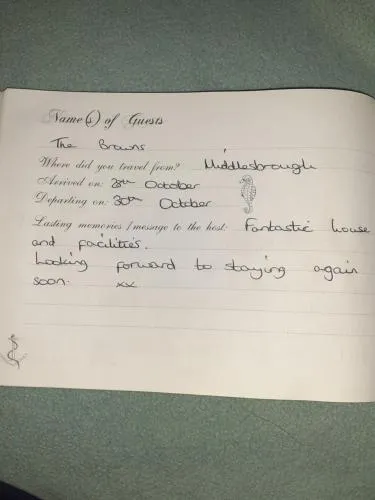 Name(s) of Guests
The Browns
Where did you travel from? Middlesbrough
Arrived on: 28th October
Departing on: 30th October
Lasting memories / message to the host: Fantastic house
and facilities.
Looking forward to staying again
soon. xx